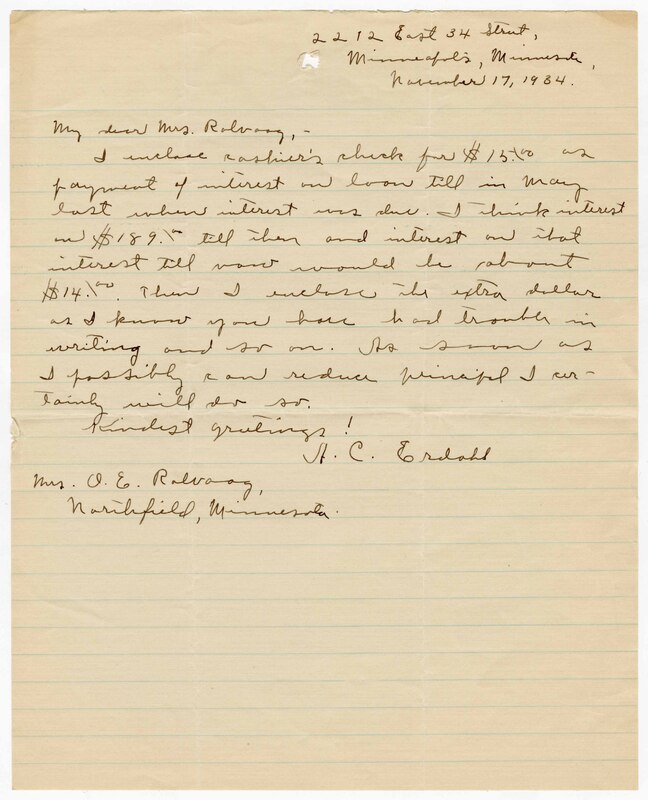 2212 East 34 Street,
Minneapolis, Minnesota,
November 17, 1934.
My dear Mrs. Rolvaag,-
I enclose cashier's check for $15.00 as
payment of interest on loan till in May
last when interest was due. I think interest
on $189.00 till then and interest on that
interest till now would be about
$14.00. Then I enclose the extra dollar
as I know you have had trouble in
writing and so on. As soon as
I possibly can reduce principal I cer-
tainly will do so.
Kindest greetings!
A. C. Erdahl
Mrs. O. E. Rolvaag,
Northfield, Minnesota.